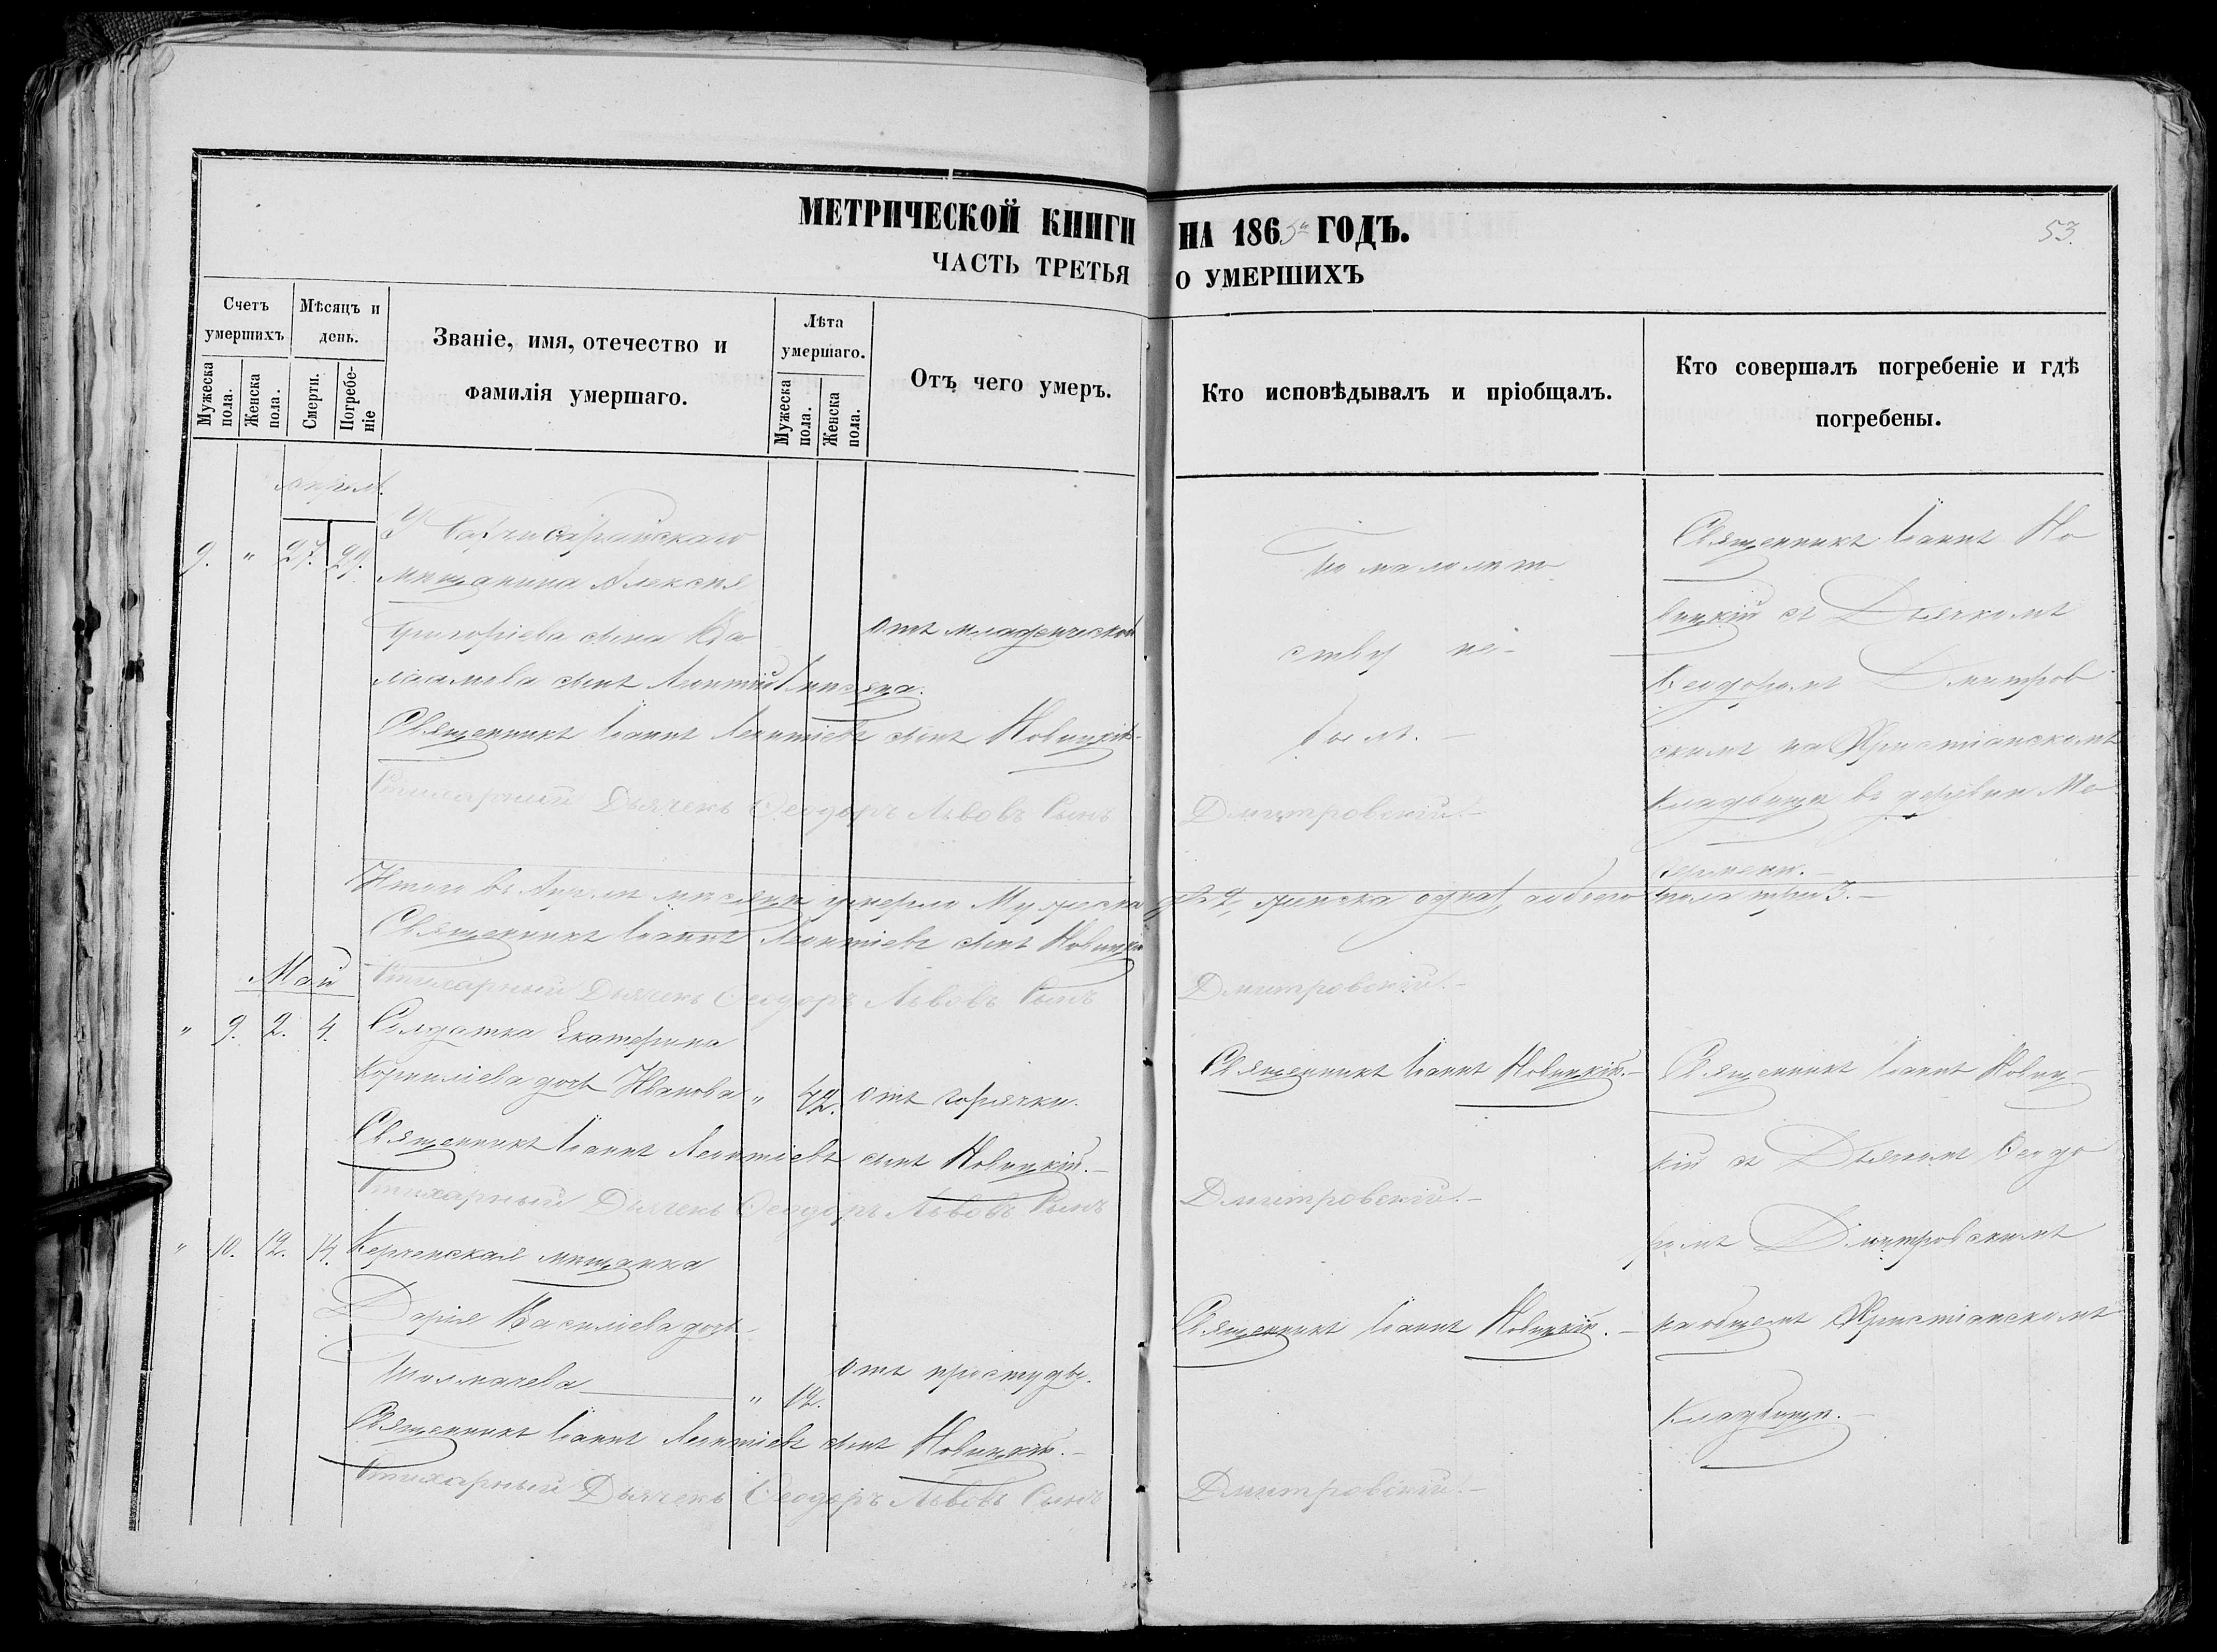 МЕТРИЧЕСКОЙ КНИГИ НА 1865й ГОДЪ.
53.
ЧАСТЬ ТРЕТЬЯ О УМЕРШИХЪ
Счетъ умершихъ
Мужеска пола.
Женска пола.
Мѣсяцъ и день.
Смерти.
Погребеніе
Званіе, имя, отечество и
фамилія умершаго.
Лѣта умершаго.
Мужеска пола.
Женска пола.
Отъ чего умеръ.
Кто исповѣдывалъ и пріобщалъ.
Кто совершалъ погребеніе и гдѣ
погребены.
9. " 27. 29.
мѣщанина Алексѣя
Григоріева сына
сынъ Леонтій
отъ младенческой
По малолѣт
ству не
былъ.
Священникъ Іоаннъ Но
вицкій съ Дьячкомъ
Ѳеодоромъ Дмитров
скимъ на Христіанскомъ
Кладбищѣ въ деревни
Священникъ Іоаннъ Леонтіевъ сынъ Новицкій.
Стихарный Дьячекъ Ѳеодоръ Львовъ Сынъ Дмитровскій.
Итого въ Апрѣлѣ мѣсяцѣ умерло Мужеска 2, женска одна 1, а обоего пола три 3.
Священникъ Іоаннъ Леонтіевъ сынъ Новицкій
Стихарный Дьячекъ Ѳеодоръ Львовъ Сынъ Дмитровскій.
Май
" 9. 2. 4.
Солдатка Екатерина
Корниліева дочь Иванова " 72. отъ горячки.
Священникъ Іоаннъ Новицкій.
Священникъ Іоаннъ Новиц
кій съ Дьячкомъ Ѳеодо
ромъ Дмитровскимъ
на общемъ Христіанскомъ
Кладбищѣ.
Священникъ Іоаннъ Леонтіевъ сынъ Новицкій.
Стихарный Дьячекъ Ѳеодоръ Львовъ Сынъ Дмитровскій.
" 10. 12. 14.
Керченская мѣщанка
Дарія Василіева дочь
Толмачева " 12. отъ простуды.
Священникъ Іоаннъ Новицкій.
Священникъ Іоаннъ Леонтіевъ сынъ Новицкій.
Стихарный Дьячекъ Ѳеодоръ Львовъ Сынъ Дмитровскій.